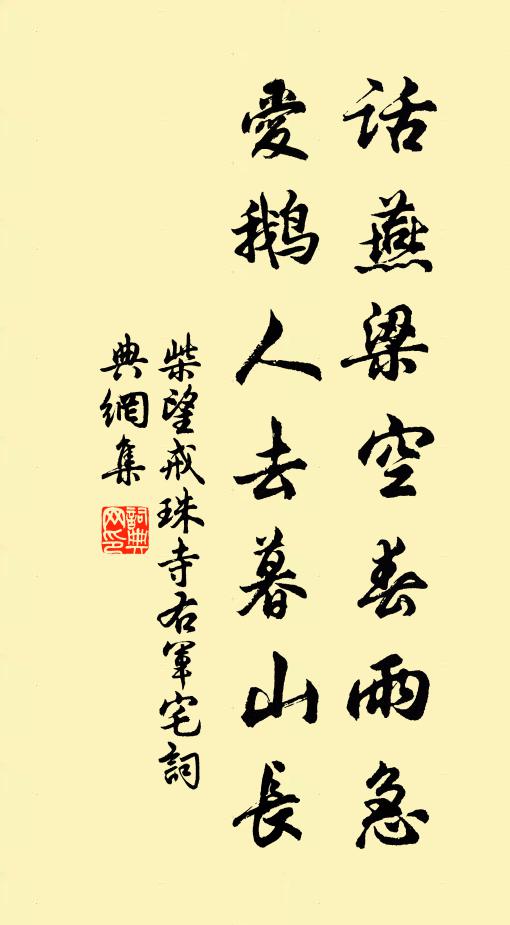 話燕梁空春雨急
愛鵝人去暮山長
柴望戒珠寺右軍宅詞
典網集
詞典
网印